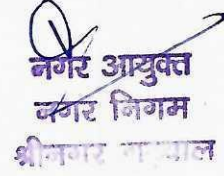 नगर आयुक्त
नगर निगम
श्रीनगर गढ़वाल